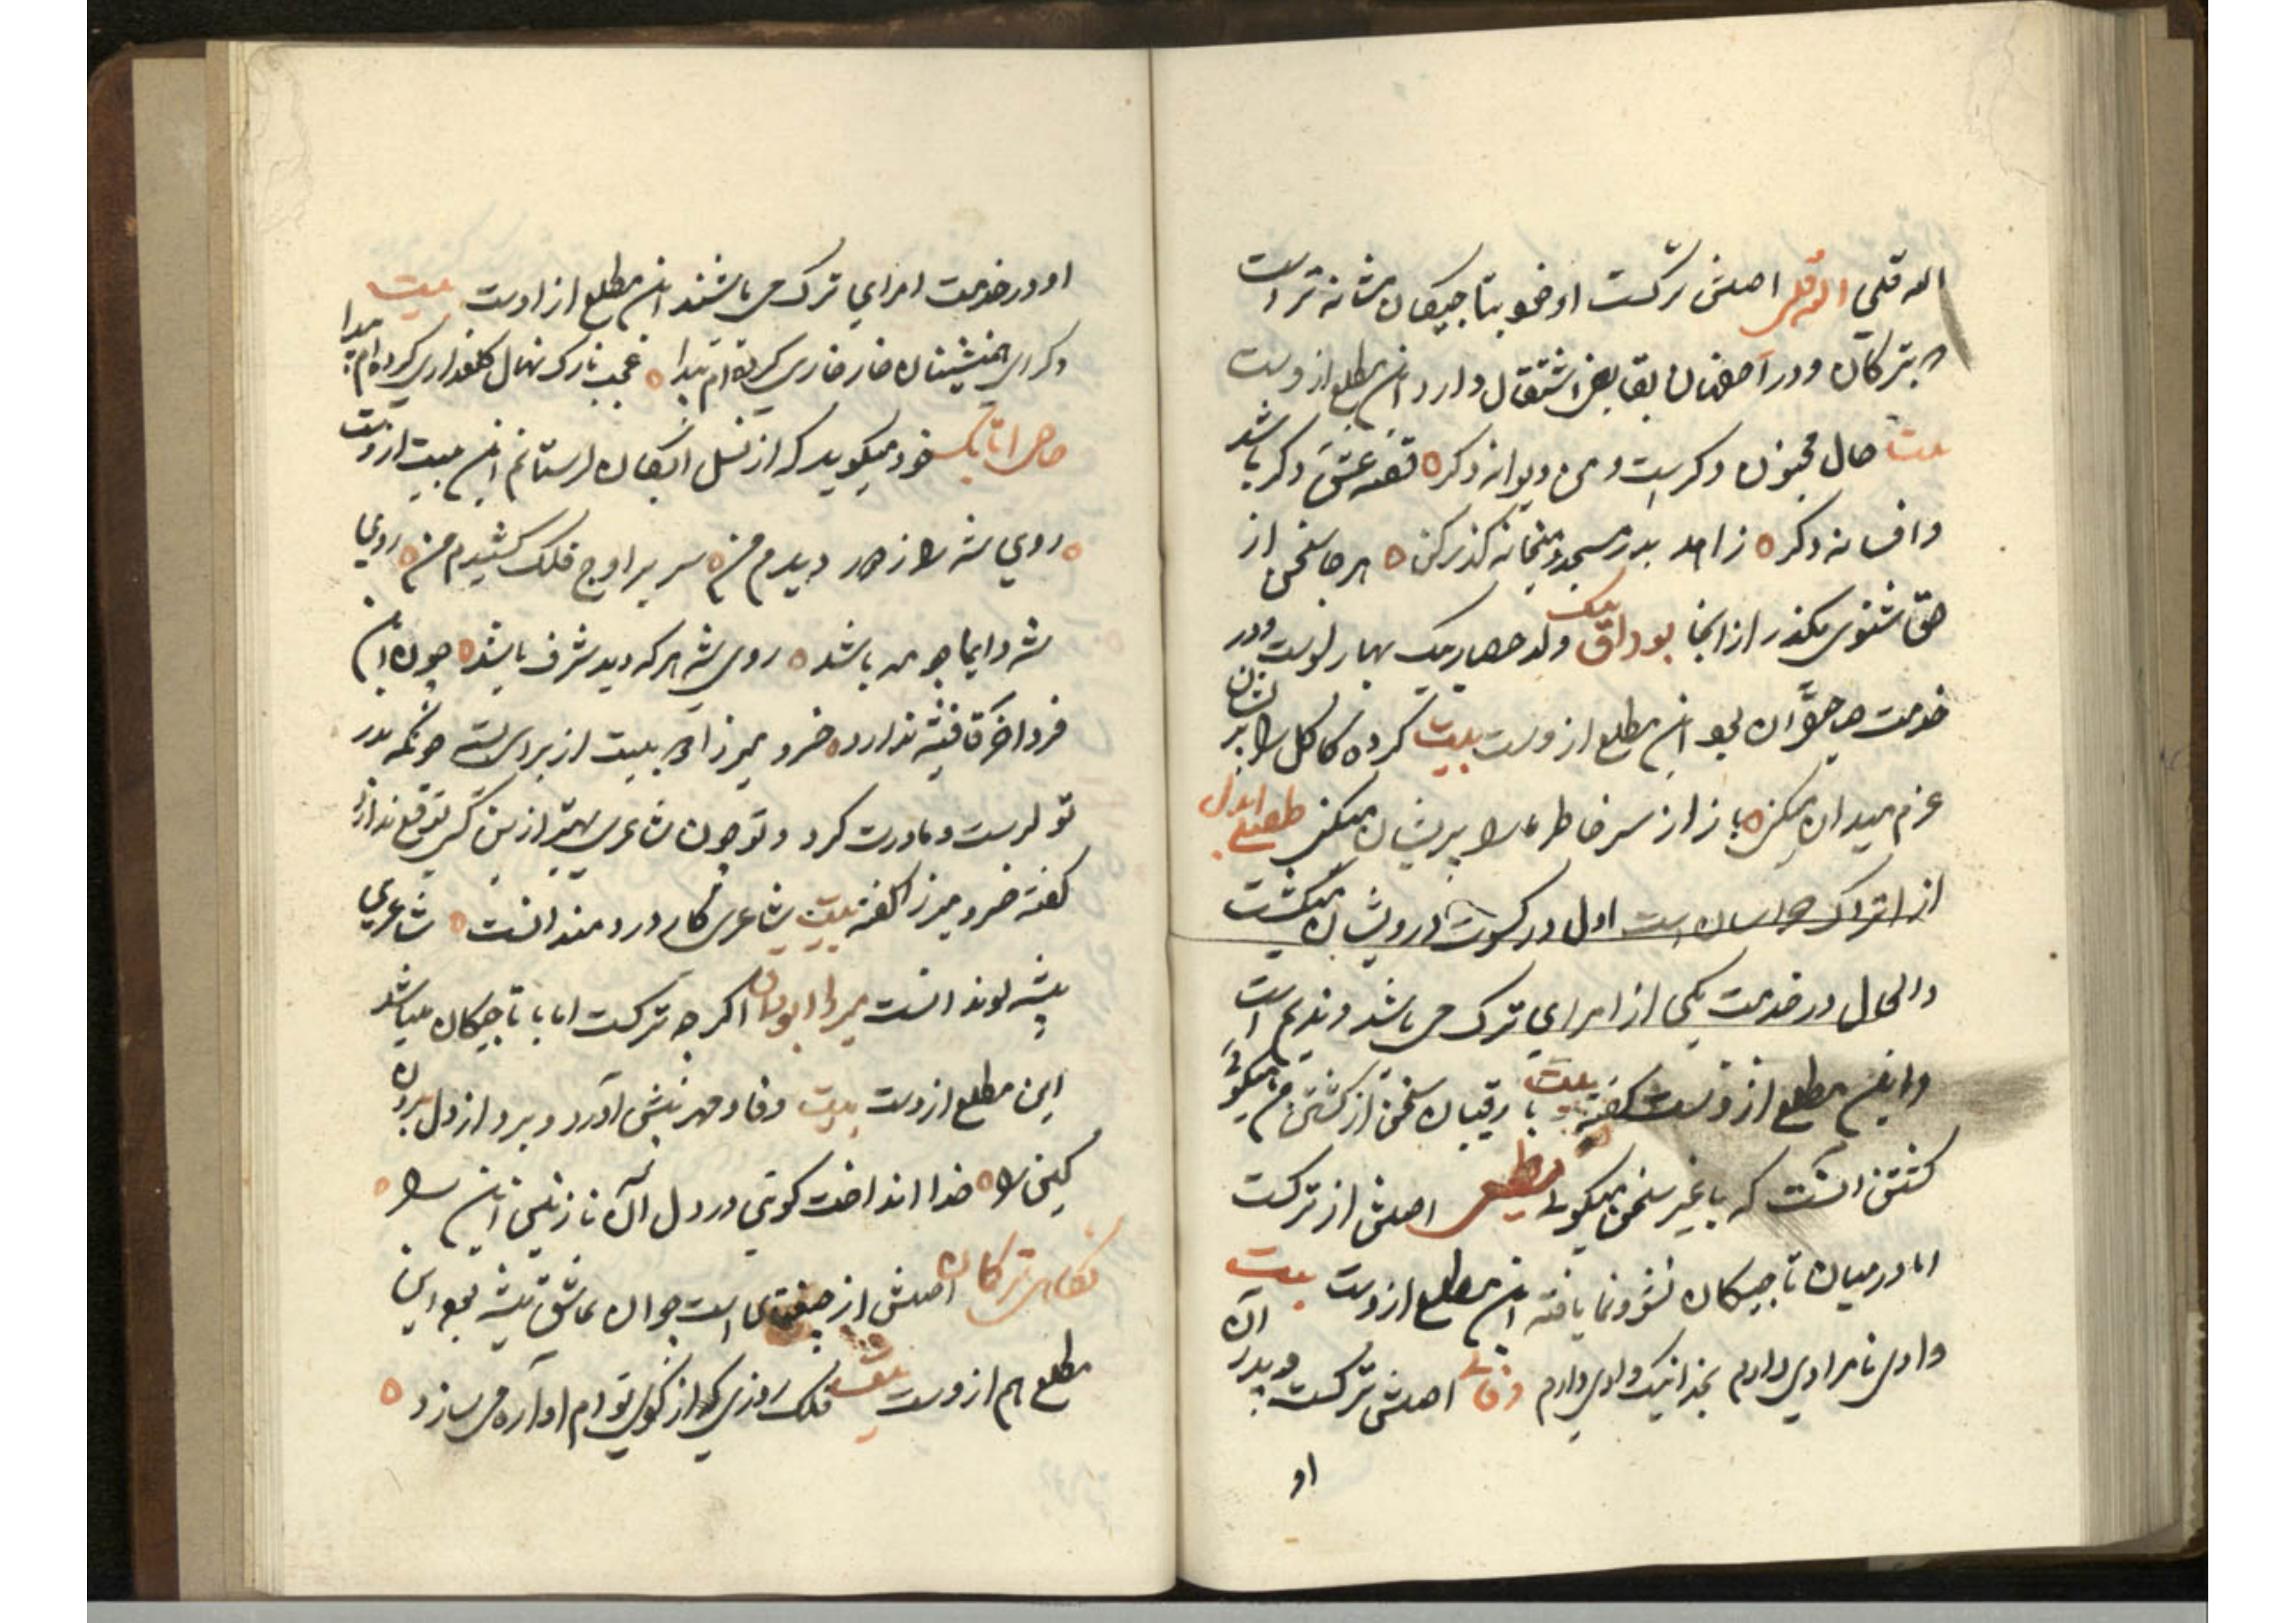 اله قلی الله قلی اصلش ترکست او خو بتاجیکان مشابه تر است
که بترکان و در آصفهان بقابض اشتغال دارد این مطلع از وست
بیت حال مجنون دکرست و من دیوانه دکر ٥ قصه عشق دکر باشد
و افسانه دکر ٥ زاهد بدر مسجد و میخانه گذر کن ٥ هر جا سخن از
حق شنوی بگذر از آنجا بوداق بیک ولد حصار بیک بهارلوست و در
خدمت میبود این مطلع از وست بیت کرده کاکل را پریشان
عزم میدان میکنی ٥ باز از سر خاطر ما را پریشان میکنی طفیلی ابدال
از اتراک خراسان است اول در کسوت درویشان میگشت
والحال در خدمت یکی از امرای ترک می باشد و ندیم است
و این مطلع از وست گفته بیت با رقیبان سخن از کشتن ما میگوئی
کشتن آنست که با غیر سخن میگوئی مطیعی اصلش از ترکست
اما در میان تاجیکان نشو و نما یافته این مطلع از وست بیت
وادی نامرادی دارم بخدا نیک وادی دارم وفائی اصلش ترکست و پدر آن
او
او در خدمت امرای ترک می باشند این مطلع از اوست بیت
دکر ای همنشینان خار خاری کرده ام پیدا ٥ عجب نازک نهال گلعذاری کرده ام پیدا
اتابک خود میگوید که از نسل اتابکان لرستانم این بیت از وست
٥ روی شه را ز دور دیدم من ٥ سر بر اوج فلک کشیدم من ٥ روی
شه دایما چو مه باشد ٥ روی شه هر که دید شرف باشد ٥ چون این
فرد آخر قافیه ندارد ٥ خسرو میرزا بیت از برای بسته چونکه پدر
تو لرست و مادرت کرد و تو چون شاعری بهتر ازین کس توقع ندارد
گفته خسرو میرزا گفته بیت شاعری کار دردمندانست ٥ شاعری
پیشه لوندانست میرزا اکر چه ترکست اما با تاجیکان میباشد
این مطلع از وست بیت وفا و مهر پیش آورد و برد از دل برون
کین را ٥ خدا انداخت گوئی در دل آن نازنین این را ٥
ترکان اصلش از چغتای است جوان عاشق پیشه بود این
مطلع هم از وست بیت فلک روزی که از کوی تو ام آواره می سازد ٥